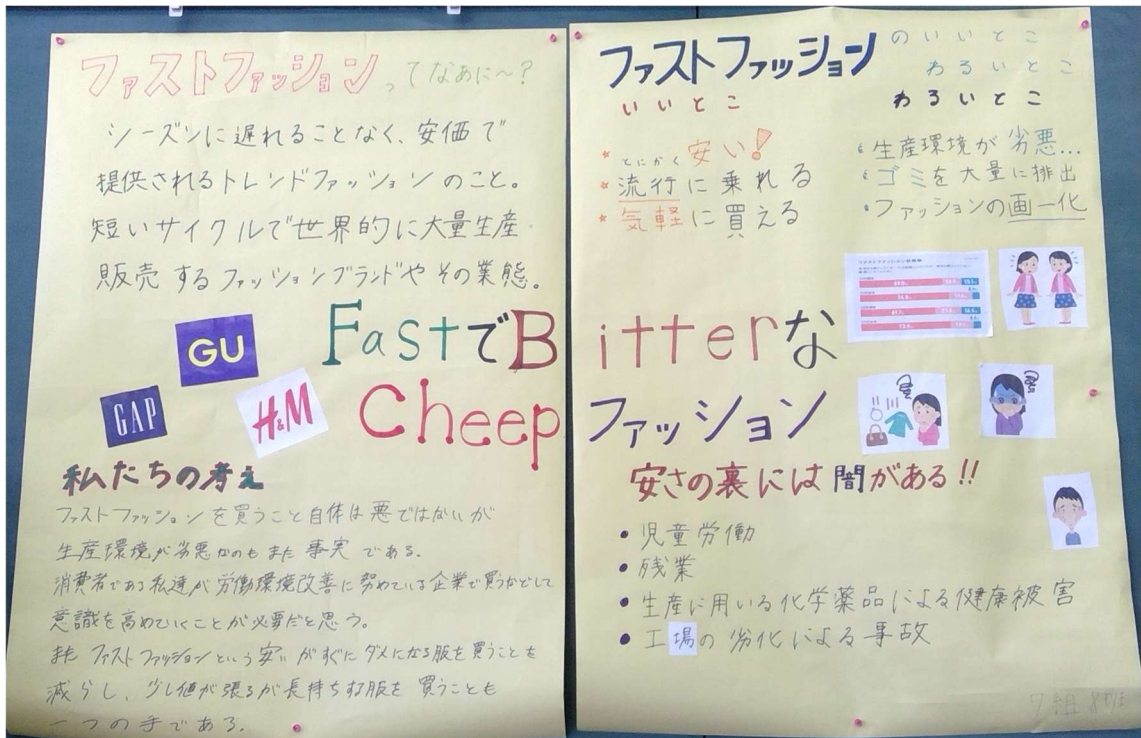 ファストファッションってなあに〜？
シーズンに遅れることなく、安価で
提供されるトレンドファッションのこと。
短いサイクルで世界的に大量生産・
販売するファッションブランドやその業態。
GU
GAP
H&M
FastでBitterな
Cheepファッション
私たちの考え
ファストファッションを買うこと自体は悪ではないが
生産環境が劣悪なのもまた事実である。
消費者である私達が労働環境改善に努めている企業で買うなどして
意識を高めていくことが必要だと思う。
また ファストファッションという安いがすぐにダメになる服を買うことを
減らし、少し値が張るが長持ちする服を買うことも
一つの手である。
ファストファッションのいいとこ
わるいとこ
いいとこ
とにかく安い!
流行に乗れる
気軽に買える
わるいとこ
生産環境が劣悪...
ゴミを大量に排出
・ファッションの画一化
安さの裏には闇がある!!
• 児童労働
• 残業
• 生産に用いる化学薬品による健康被害
• 工場の劣化による事故
7組